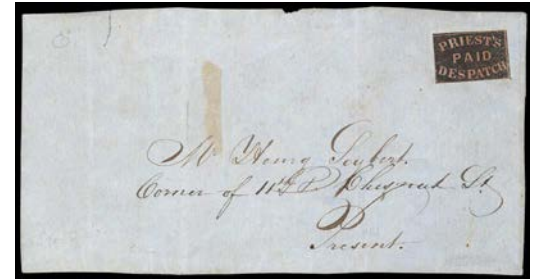 PRIEST'S
PAID
DESPATCH
Mr Henry Seybert.
Corner of 11th & Chesnut St
Present.